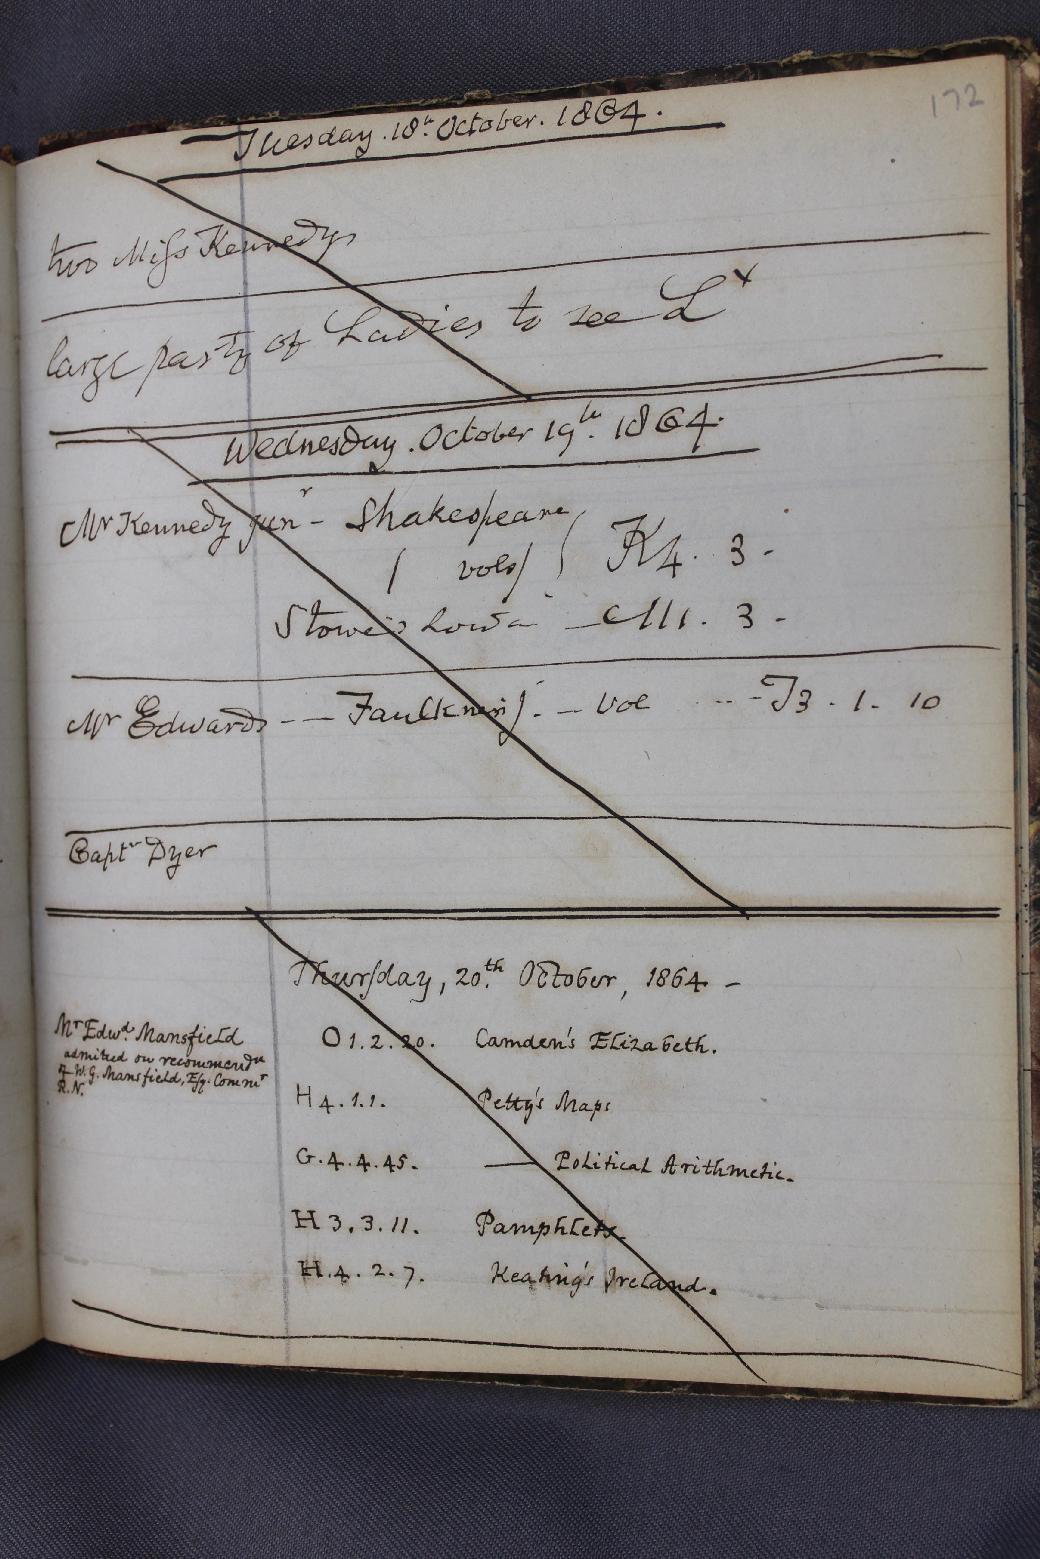 172
Tuesday. 18th October. 1864.
two Miss Kennedys
large party of Ladies to see L
Wednesday. October 19th. 1864.
Mr Kennedy junr - Shakespeare
vols K4. 3 -
Stowe's - M1. 3 -
Mr Edwards - - Faulkner - vol - J3. 1. 10
Captn Dyer
Thursday, 20th. October, 1864 -
Mr Edwd. Mansfield
admitted on recommendn
of W. G. Mansfield, Esq. Commr
R.N.
O 1. 2. 20. Camden's Elizabeth.
H 4. 1. 1. Petty's Maps
G. 4. 4. 45. — Political Arithmetic.
H 3. 3. 11. Pamphlets.
H. 4. 2. 7. Keating's Ireland.